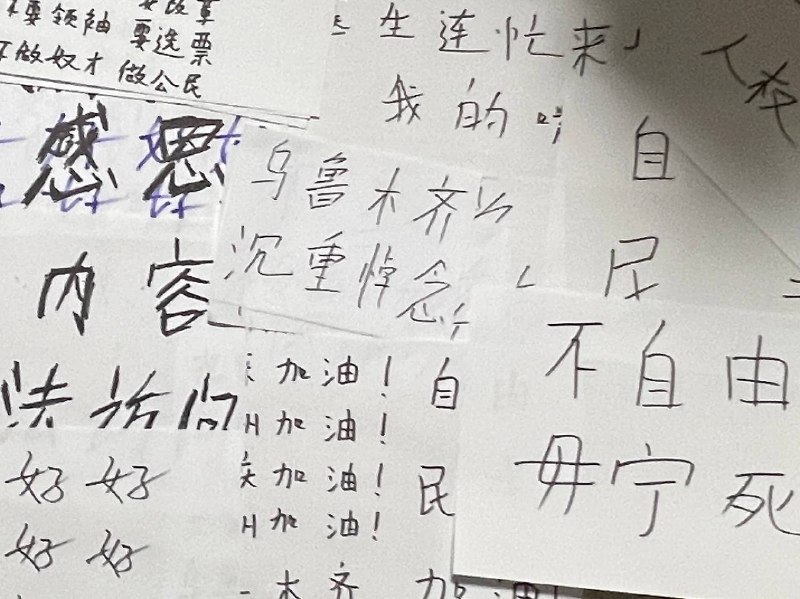 要改革
要领袖 要选票
做奴才 做公民
感恩
内容
法访问
好好
好好
生连忙来
我的
乌鲁木齐
沉重悼念
加油！
加油！
加油！
加油！
木齐 加油！
自
民
自
民
人
不自由
毋宁死